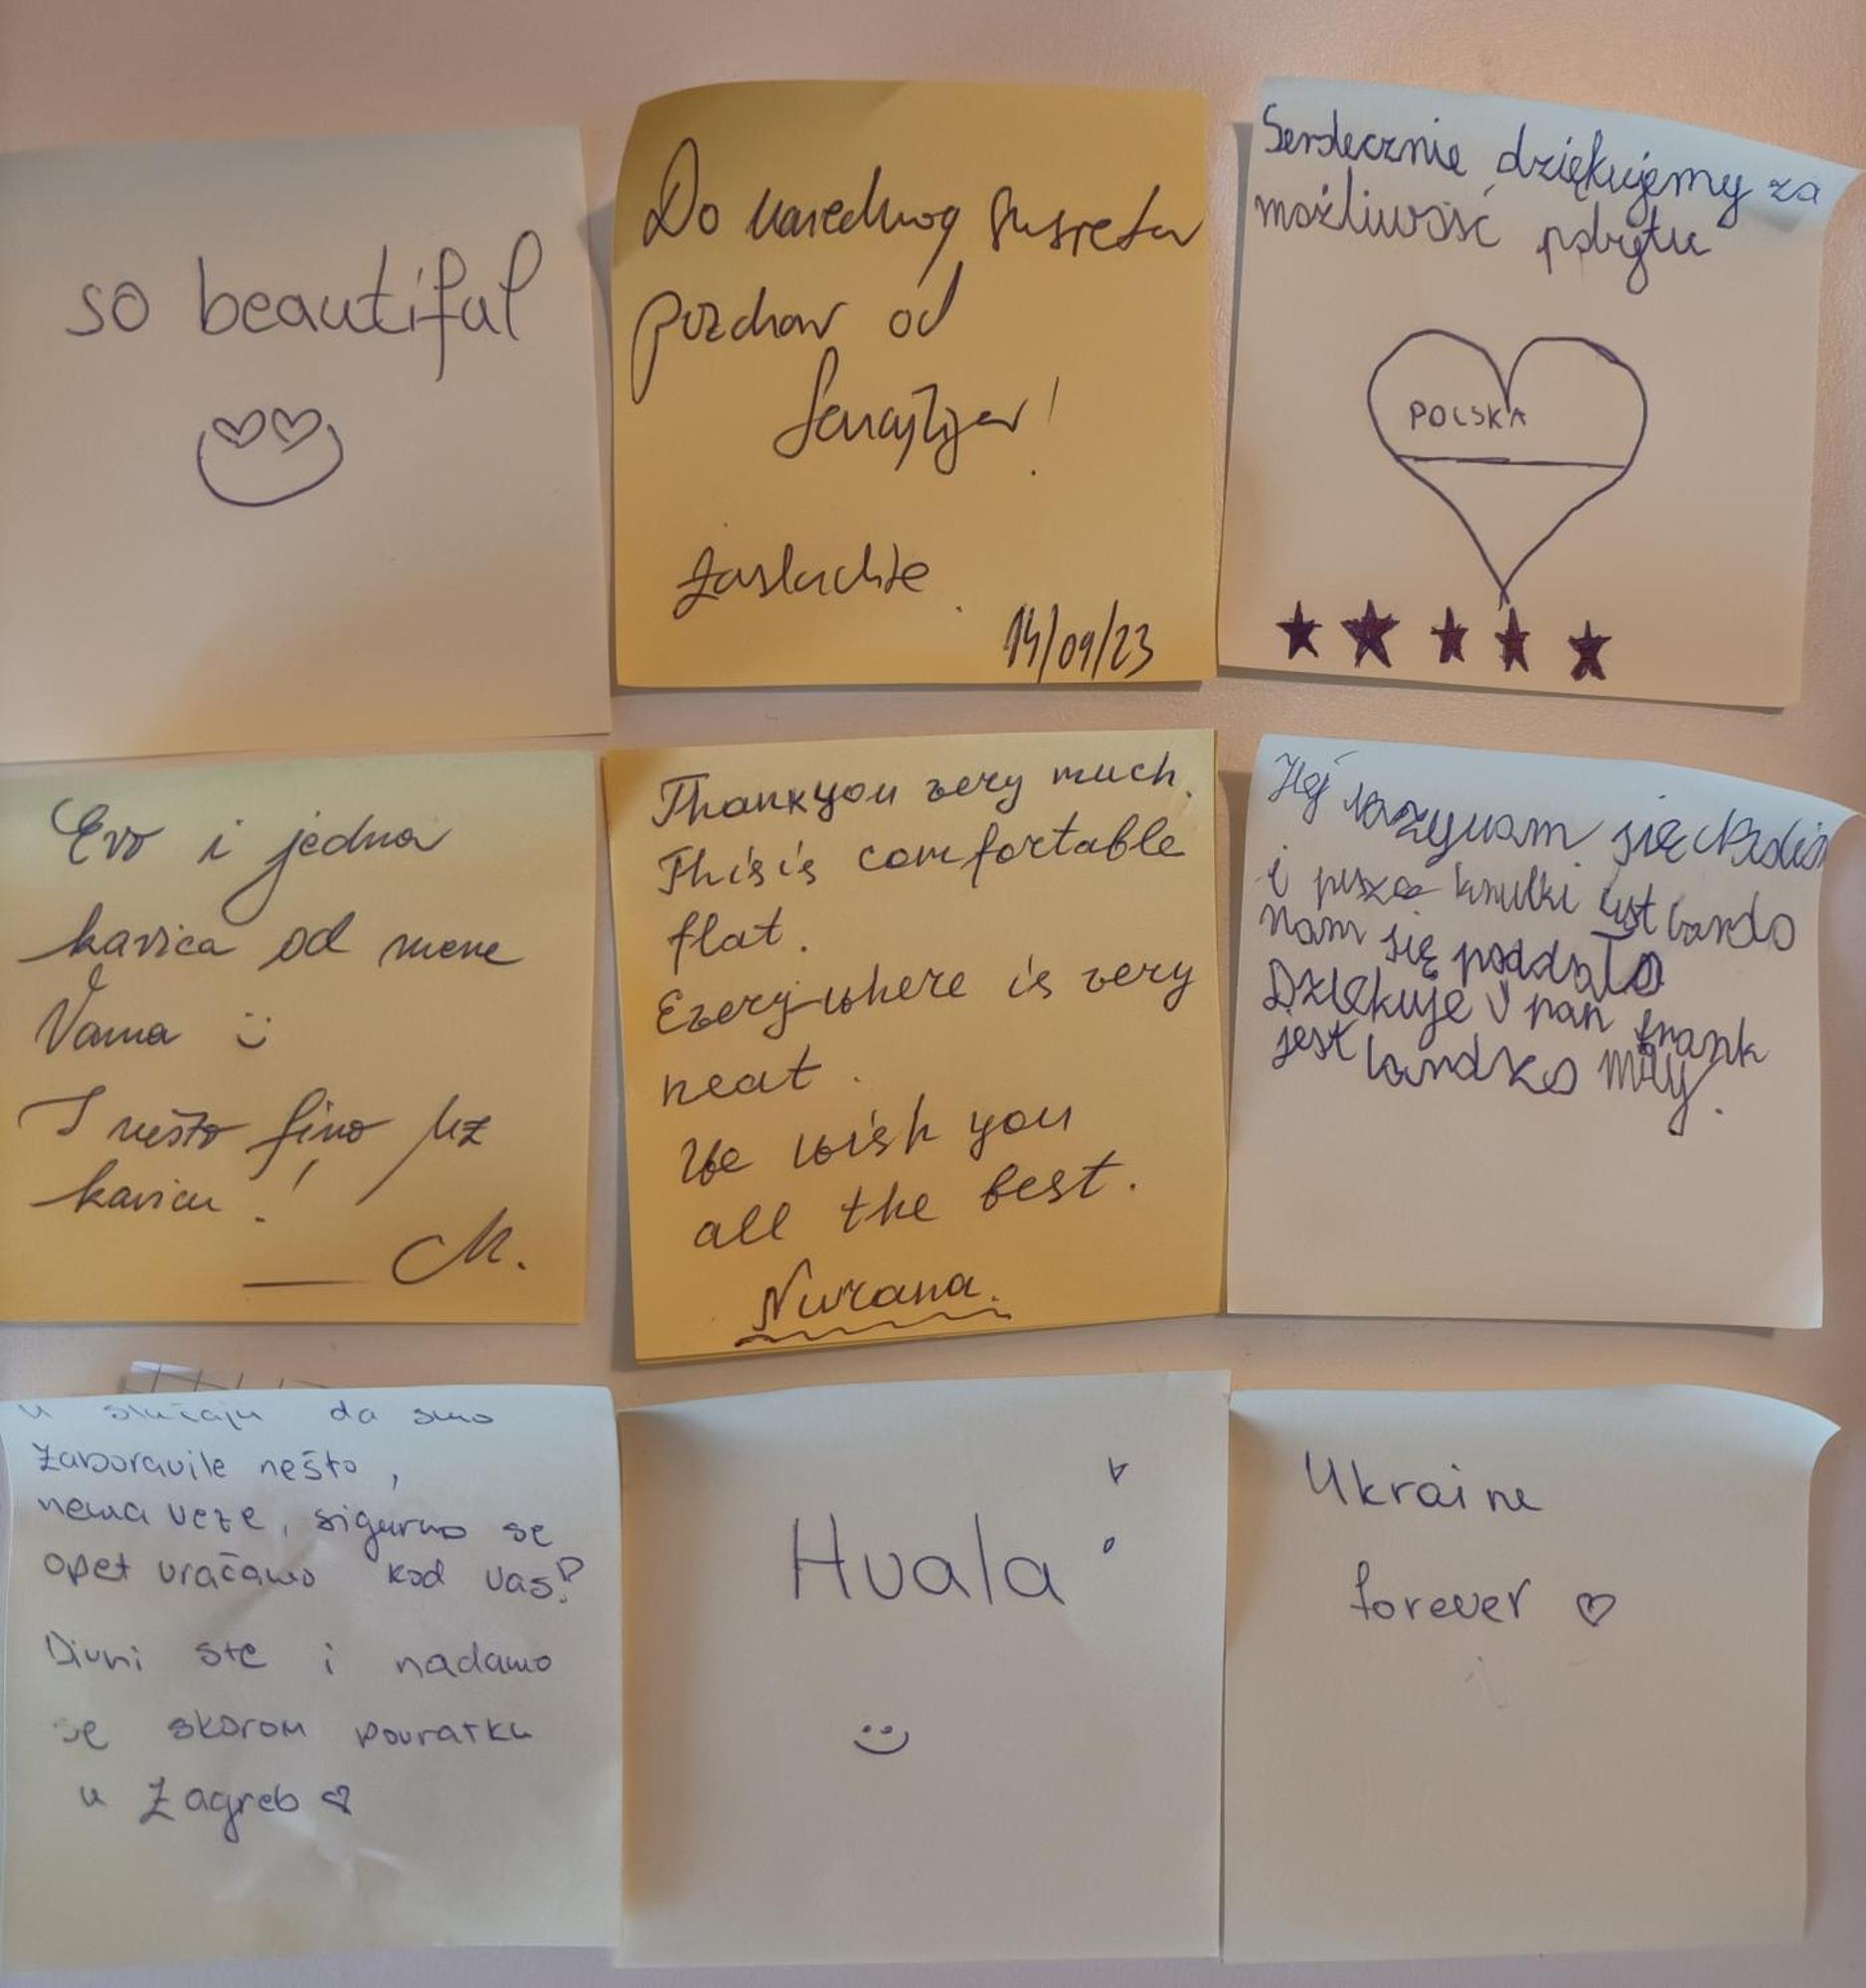 so beautiful
Do narednog susreta
pozdrav od
Zaslađite.
14/09/23
Serdecznie dziękujemy za
możliwość pobytu
POLSKA
Evo i jedna
kavica od mene
Vama
I nešto fino uz
kavicu!
M.
Thank you very much.
This is comfortable
flat.
Everywhere is very
neat.
We wish you
all the best.
Nurana.
Hej nazywam się
i
nam się
Dziękuje pan frank
jest bardzo miły.
u slučaju da smo
zaboravile nešto,
nema veze, sigurno se
opet vraćamo kod vas!
Divni ste i nadamo
se skorom povratku
u Zagreb
Hvala!
Ukraine
forever